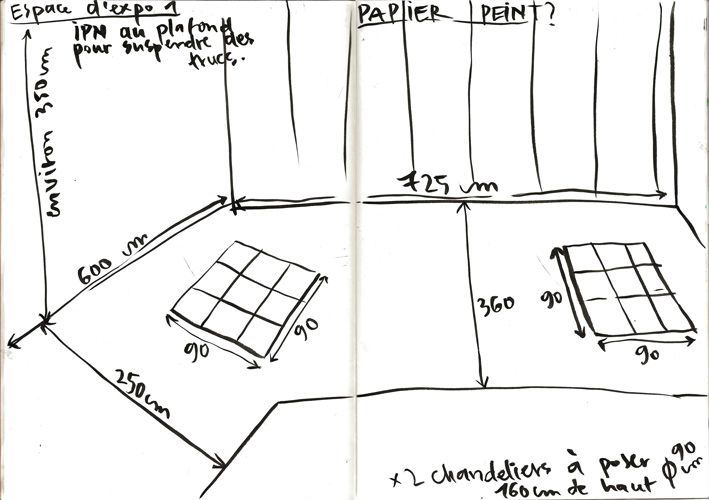 Espace d'expo 1
IPN au plafond
pour suspendre des
trucs.
PAPIER PEINT?
environ 350 cm
725 cm
600 cm
90
90
360
90
90
250cm
x2 chandeliers à poser
160cm de haut ϕ 90 cm